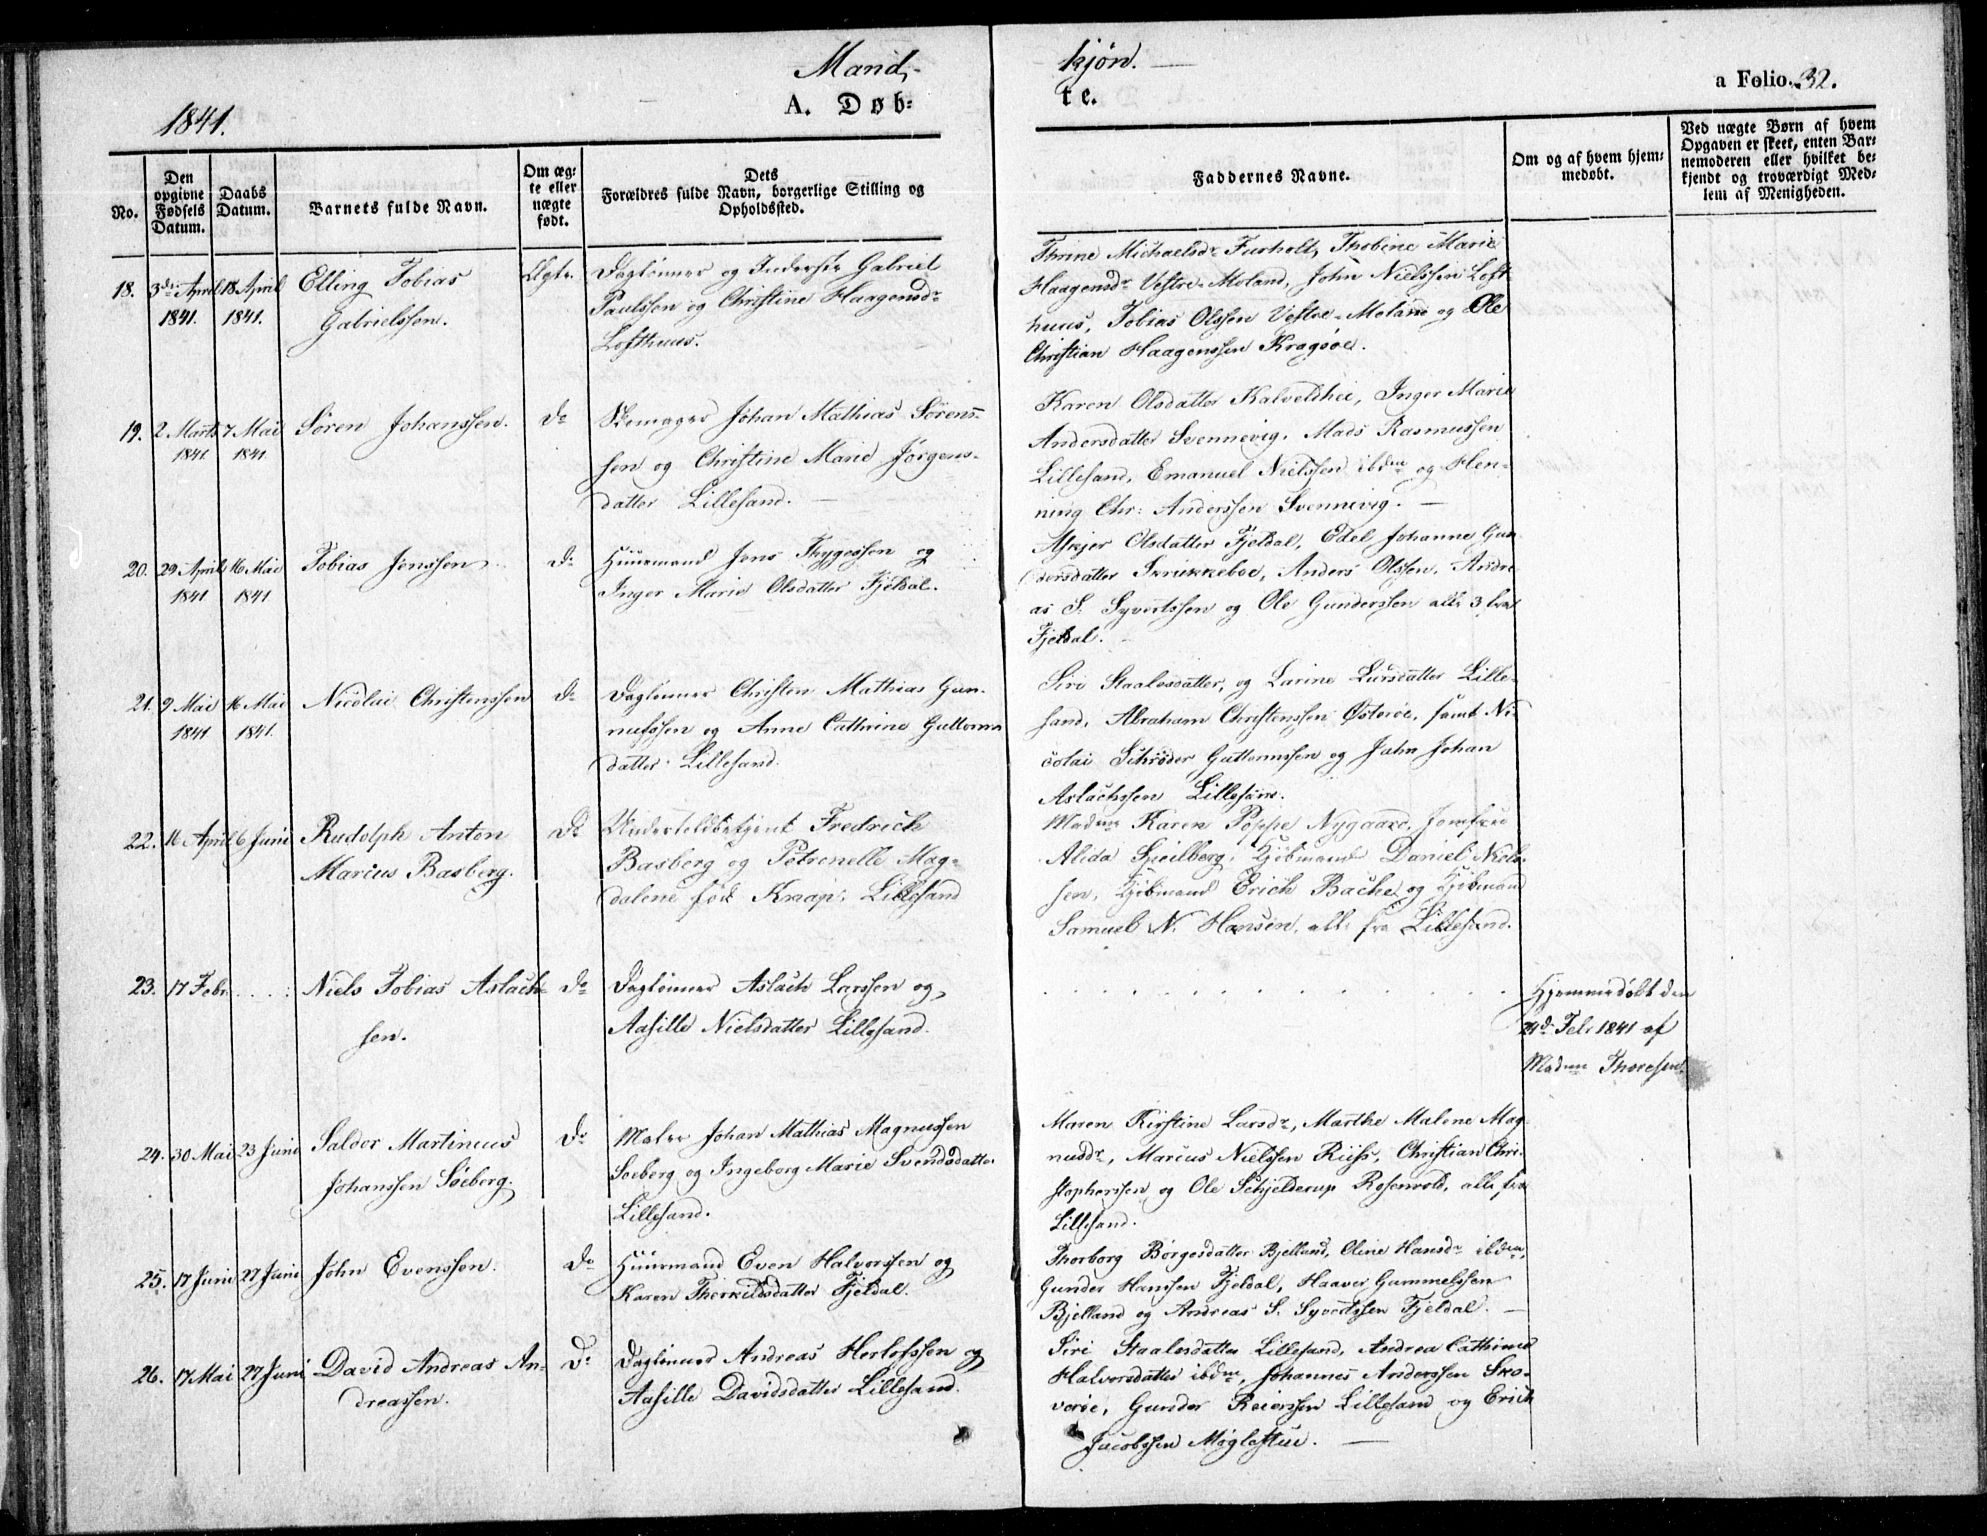 Mand-
kjøn.
1841.
A. Døb-
te.
a Folio. 32.
No.
Den opgivne Fødsels Datum.
Daabs Datum.
Barnets fulde Navn.
Om ægte eller nægte født.
Dets
Forældres fulde Navn, borgerlige Stilling og
Opholdssted.
Faddernes Navne.
Om og af hvem hjem-
medøbt.
Ved nægte Børn af hvem
Opgaven er skeet, enten Bar-
nemoderen eller hvilket be-
kjendt og troværdigt Med-
lem af Menigheden.
18. 3die April 1841. 18 April 1841.
Elling Tobias
Gabrielssen.
Ægte.
Daglønner og Inderste Gabriel
Paulssen og Christine Haagensdr
Lofthuus.
Thrine Michaelsdr Furholt, Thobine Marie
Haagensdr Vestre-Moland, John Nielssen Loft
huus, Tobias Olssen Vestre-Moland og Ole
Christian Haagenssen Kragsøe.
19. 2. Marts 1841 7 Mai 1841
Søren Johanssen.
Do
Skomager Johan Mathias Sørens-
sen og Christine Marie Jørgens-
datter Lillesand.
Karen Olsdatter Kalveldhei, Inger Marie
Andersdatter Svennevig, Mads Rasmussen
Lillesand, Emanuel Nielssen ibdm og Hen-
ning Chr: Anderssen Svennevig.
20. 29 April 1841 16 Mai 1841
Tobias Jenssen
Do
Huusmand Jens Thygessen og
Inger Marie Olsdatter Fjeldal.
Asgjer Olsdatter Fjeldal, Edel Johanne Gun
dersdatter Skrikkeboe, Anders Olssen, Andre
as S. Syvertssen og Ole Gunderssen alle 3 fra
Fjeldal.
21. 9 Mai 1841 16 Mai 1841.
Nicolai Christenssen
Do
Daglønner Christen Mathias Gun-
nufssen og Anne Cathrine Guttorms
datter Lillesand.
Siri Staalesdatter, og Larine Larsdatter Lille-
sand, Abraham Christenssen Østerøe, samt Ni-
colai Schrøder Guttormssen og Jahn Johan
Aslachssen Lillesand.
22. 16 April 6 Juni
Rudolph Anton
Marius Basberg.
Do
Undertoldbetjent Fredrich
Basberg og Petronelle Mag-
dalene fød Knap, Lillesand
Madme Karen Poppe Nygaard, Jomfrue
Alida Speilberg, Kjøbmand Daniel Niels-
sen, Kjøbmand Erich Bache og Kjøbmand
Samuel N. Hansen, alle fra Lillesand.
23. 17 Febr.
Niels Tobias Aslach-
sen.
Do
Daglønner Aslach Larssen og
Aasille Nielsdatter Lillesand.
Hjemmedøbt den
24d Feb. 1841 af
Madme Thoresen.
24. 30 Mai 23 Juni
Salder Martinius
Johanssen Søeberg.
Do
Maler Johan Mathias Magnussen
Søeberg og Ingeborg Marie Svendsdatter
Lillesand.
Maren Kirstine Larsdr, Marthe Malene Mag-
nusdr, Marius Nielssen Riiss, Christian Chri-
stopherssen og Ole Schjelderup Rosenvold, alle fra
Lillesand.
25. 17 Juni 27 Juni
John Evenssen.
Do
Huusmand Even Halvorssen og
Karen Therkildsdatter Fjeldal.
Thorborg Børgesdatter Bjelland, Oline Hansdr ibdm,
Gunder Hanssen Fjeldal, Haaver Gummelssen
Bjelland og Andreas S. Syvertssen Fjeldal.
26. 17 Mai 27 Juni
David Andreas An-
dreassen.
Do
Daglønner Andreas Herlofssen og
Aasille Davidsdatter Lillesand.
Siri Staalesdatter Lillesand, Andrea Cathrine
Halvorsdatter ibdm, Johannes Anderssen Sko-
verøe, Gunder Reierssen Lillesand og Erich
Jacobssen Møglestue.